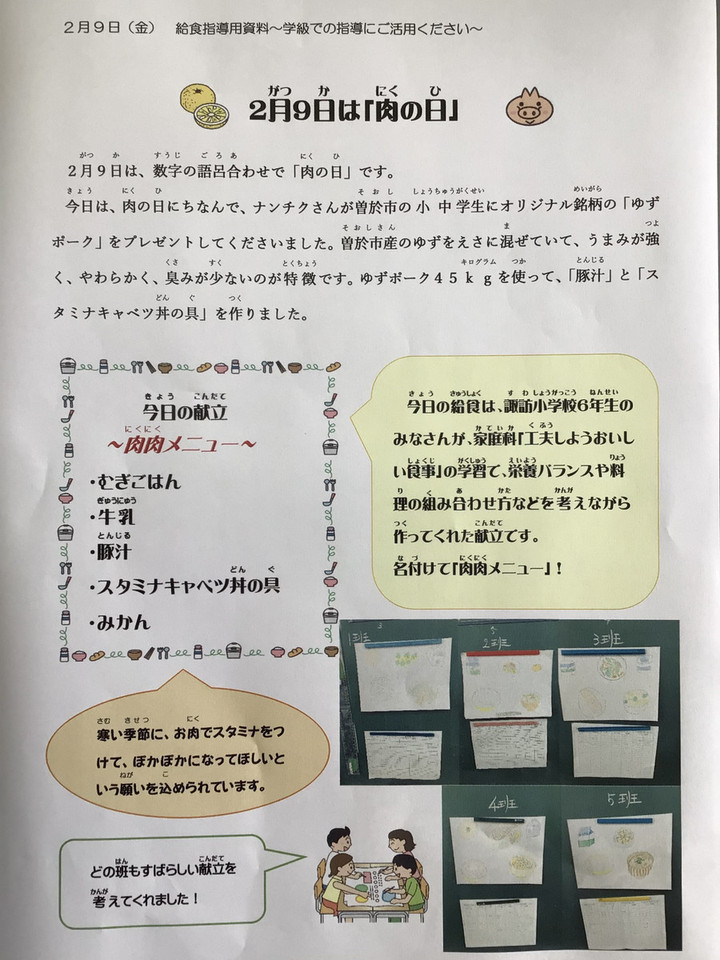 2月9日（金）　給食指導用資料～学級での指導にご活用ください～
2月9日は「肉の日」
２月９日は、数字の語呂合わせで「肉の日」です。
今日は、肉の日にちなんで、ナンチクさんが曽於市の小中学生にオリジナル銘柄の「ゆず
ポーク」をプレゼントしてくださいました。曽於市産のゆずをえさに混ぜていて、うまみが強
く、やわらかく、臭みが少ないのが特徴です。ゆずポーク４５ｋｇを使って、「豚汁」と「ス
タミナキャベツ丼の具」を作りました。
今日の献立
～肉肉メニュー～
・むぎごはん
・牛乳
・豚汁
・スタミナキャベツ丼の具
・みかん
今日の給食は、諏訪小学校6年生の
みなさんが、家庭科「工夫しようおいし
い食事」の学習で、栄養バランスや料
理の組み合わせ方などを考えながら
作ってくれた献立です。
名付けて「肉肉メニュー」！
1班
2班
3班
4班
5班
寒い季節に、お肉でスタミナをつ
けて、ぽかぽかになってほしいと
いう願いを込められています。
どの班もすばらしい献立を
考えてくれました！